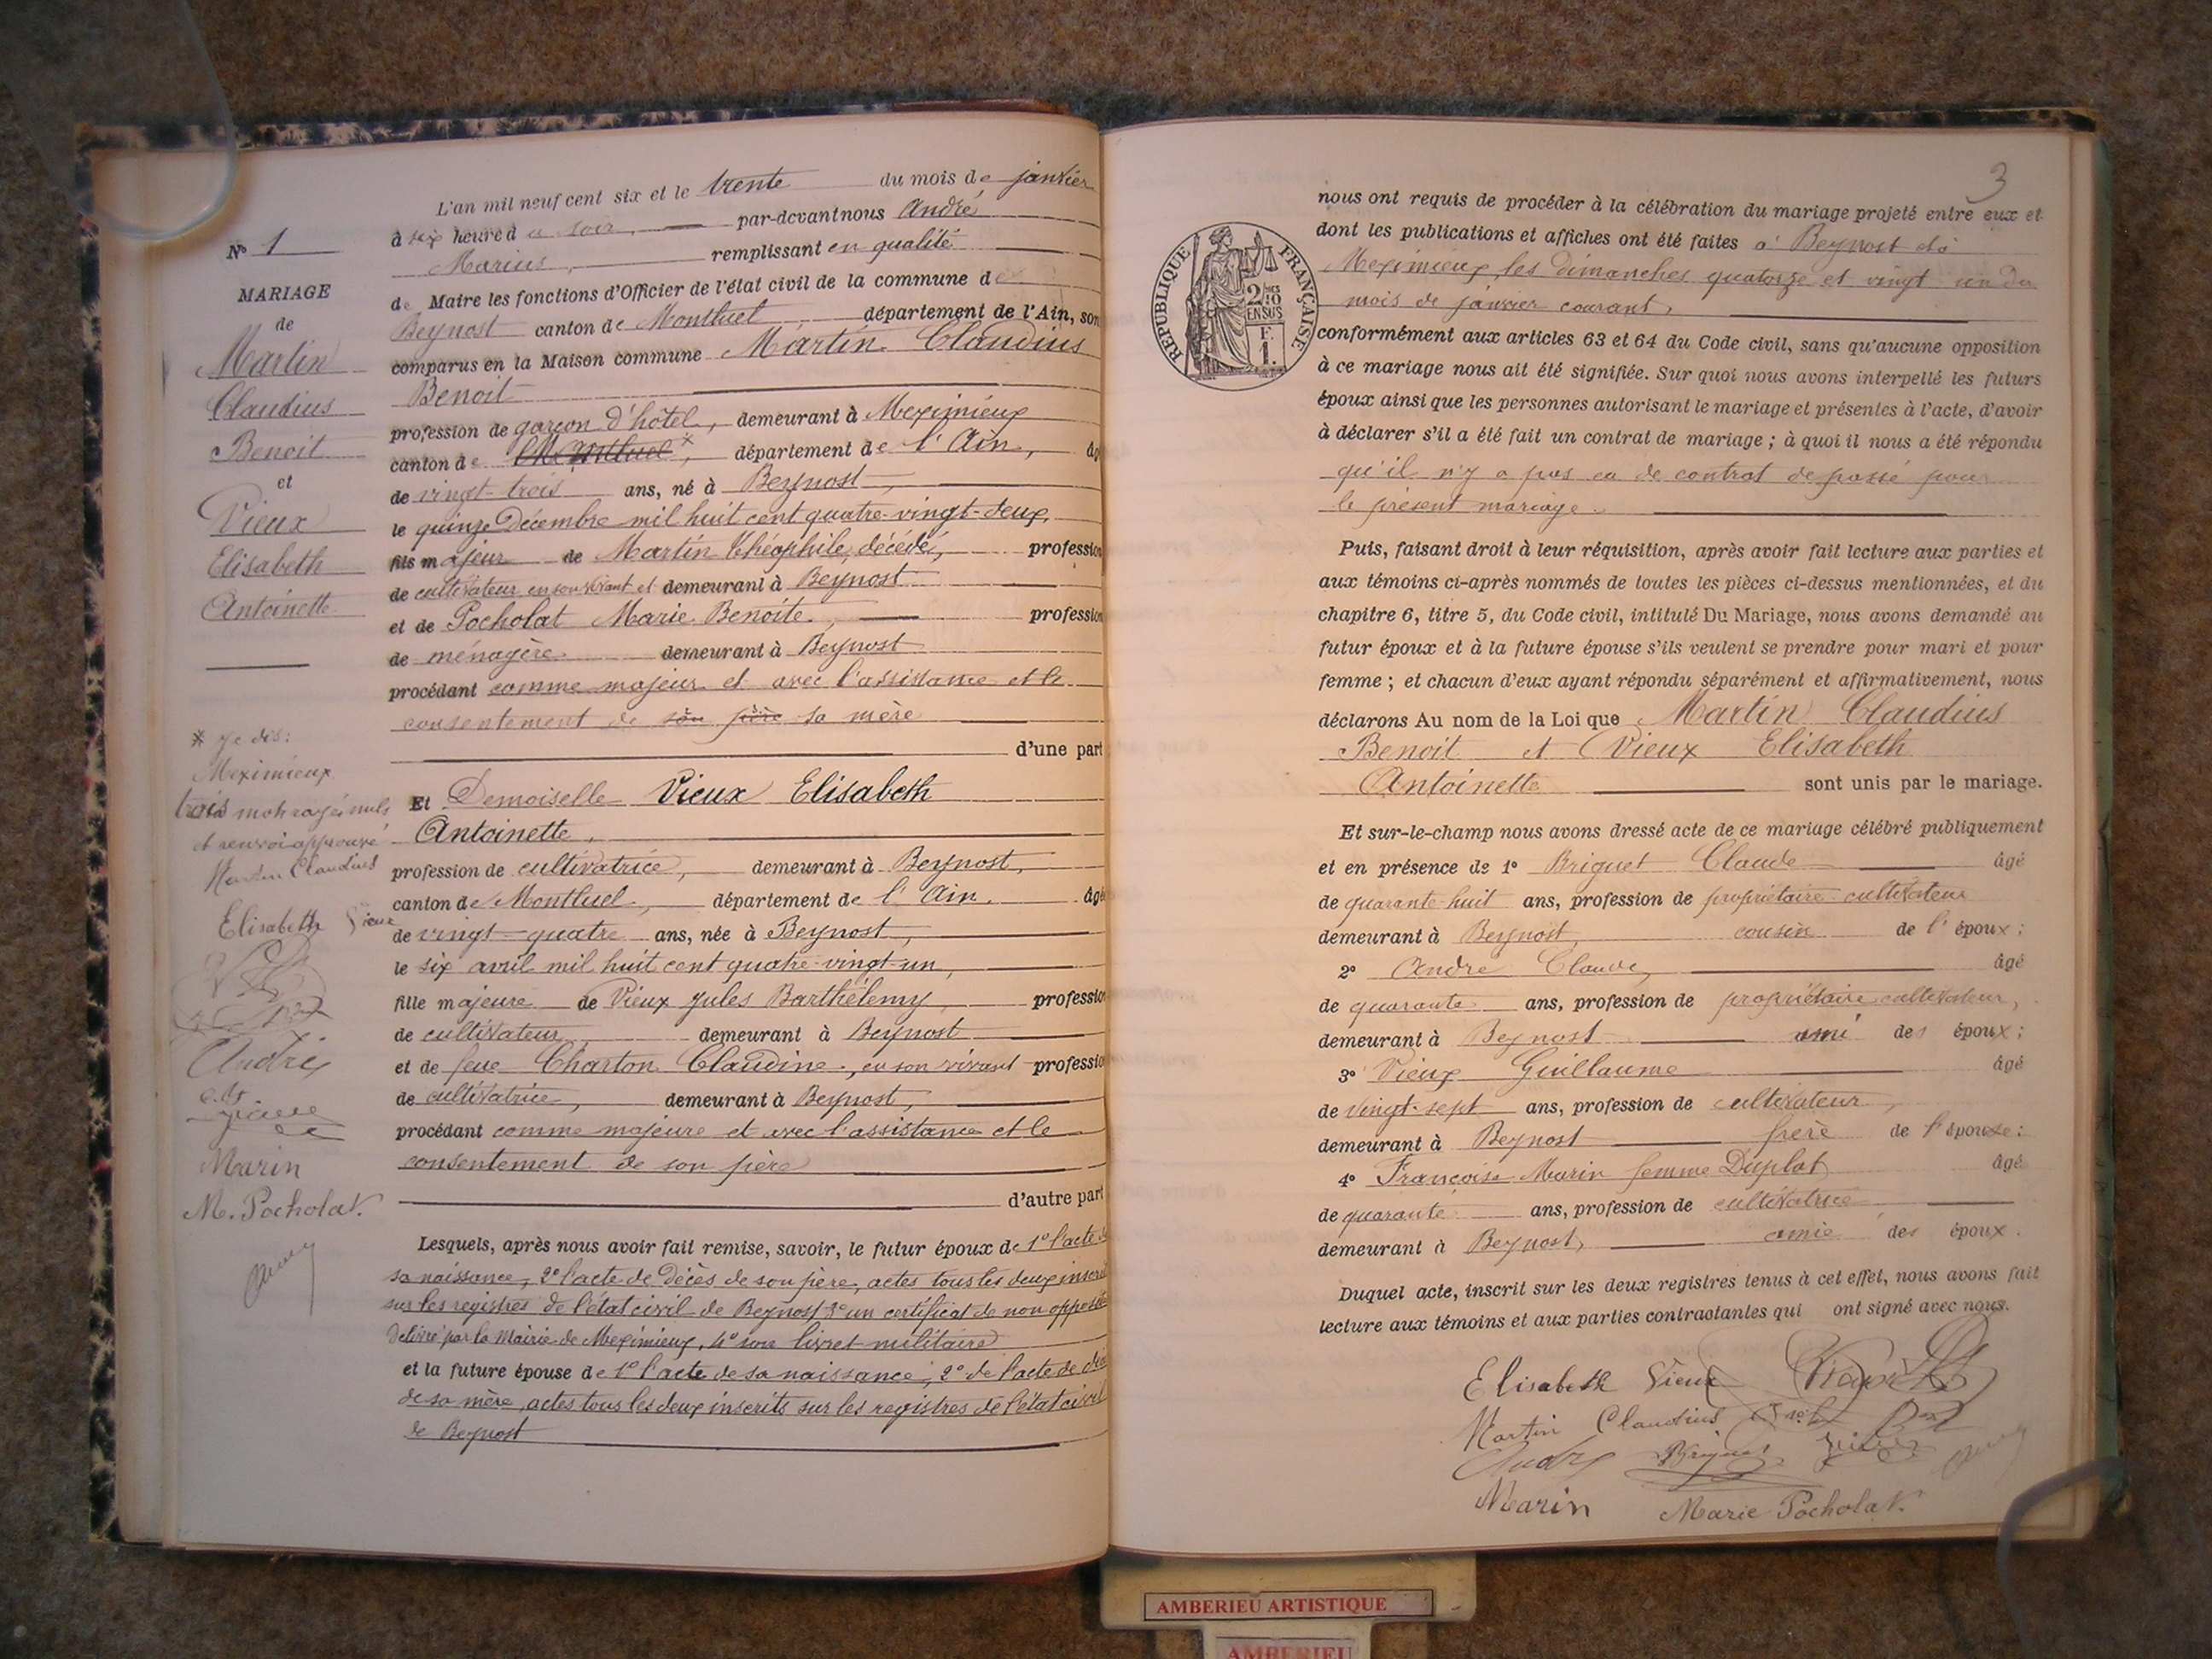 N° 1
MARIAGE
de
Martin
Claudius
Benoit
et
Vieux
Elisabeth
Antoinette
* je dis:
Meximieux
trois mots rayés nuls
et renvoi approuvé
Martin Claudius
Elisabeth Vieux
André
Marin
M. Pocholat.
L'an mil neuf cent six et le trente du mois de janvier
à six heure d u soir, par-devant nous André
Marius, remplissant en qualité
de Maire les fonctions d'Officier de l'état civil de la commune de
Beynost canton de Montluel département de l'Ain, son
comparus en la Maison commune Martin Claudius
Benoit
profession de garçon d'hôtel, demeurant à Meximieux
canton de Montluel *, département de l'Ain, âg
de vingt-trois ans, né à Beynost,
le quinze Décembre mil huit cent quatre-vingt-deux,
fils majeur de Martin Théophile, décédé, profession
de cultivateur en son vivant et demeurant à Beynost
et de Pocholat Marie Benoite, profession
de ménagère demeurant à Beynost
procédant comme majeur et avec l'assistance et le
consentement de son père sa mère
d'une part
Et Demoiselle Vieux Elisabeth
Antoinette,
profession de cultivatrice, demeurant à Beynost,
canton de Montluel, département de l'Ain. âgé
de vingt-quatre ans, née à Beynost,
le six avril mil huit cent quatre-vingt-un,
fille majeure de Vieux Jules Barthélemy, professio
de cultivateur demeurant à Beynost
et de feue Charton Claudine, en son vivant professio
de cultivatrice, demeurant à Beynost,
procédant comme majeure et avec l'assistance et le
consentement de son père
d'autre part
Lesquels, après nous avoir fait remise, savoir, le futur époux de 1° l'acte de
sa naissance, 2° l'acte de décès de son père, actes tous les deux inscrits
sur les registres de l'état civil de Beynost 3° un certificat de non opposition
délivré par la Mairie de Meximieux, 4° son livret militaire
et la future épouse de 1° l'acte de sa naissance; 2° de l'acte de décè
de sa mère, actes tous les deux inscrits sur les registres de l'état civil
de Beynost
3
RÉPUBLIQUE FRANÇAISE
2/10
EN SUS
F.
1.
nous ont requis de procéder à la célébration du mariage projeté entre eux et
dont les publications et affiches ont été faites à Beynost et à
Meximieux, les dimanches quatorze et vingt un du
mois de janvier courant,
conformément aux articles 63 et 64 du Code civil, sans qu'aucune opposition
à ce mariage nous ait été signifiée. Sur quoi nous avons interpellé les futurs
époux ainsi que les personnes autorisant le mariage et présentes à l'acte, d'avoir
à déclarer s'il a été fait un contrat de mariage ; à quoi il nous a été répondu
qu'il n'y a pas eu de contrat de passé pour
le présent mariage.
Puis, faisant droit à leur réquisition, après avoir fait lecture aux parties et
aux témoins ci-après nommés de toutes les pièces ci-dessus mentionnées, et du
chapitre 6, titre 5, du Code civil, intitulé Du Mariage, nous avons demandé au
futur époux et à la future épouse s'ils veulent se prendre pour mari et pour
femme ; et chacun d'eux ayant répondu séparément et affirmativement, nous
déclarons Au nom de la Loi que Martin Claudius
Benoit et Vieux Elisabeth
Antoinette sont unis par le mariage.
Et sur-le-champ nous avons dressé acte de ce mariage célébré publiquement
et en présence de 1° Briguet Claude âgé
de quarante-huit ans, profession de propriétaire cultivateur
demeurant à Beynost, cousin de l'époux ;
2° André Claude, âgé
de quarante ans, profession de propriétaire cultivateur,
demeurant à Beynost ami des époux ;
3° Vieux Guillaume âgé
de vingt-sept ans, profession de cultivateur,
demeurant à Beynost frère de l'épouse :
4° Françoise Marin femme Duplat âgé
de quarante ans, profession de cultivatrice
demeurant à Beynost, amie des époux.
Duquel acte, inscrit sur les deux registres tenus à cet effet, nous avons fait
lecture aux témoins et aux parties contractantes qui ont signé avec nous.
Elisabeth Vieux
Martin Claudius
André Briguet
Marin Marie Pocholat.
AMBERIEU ARTISTIQUE
AMBERIEU